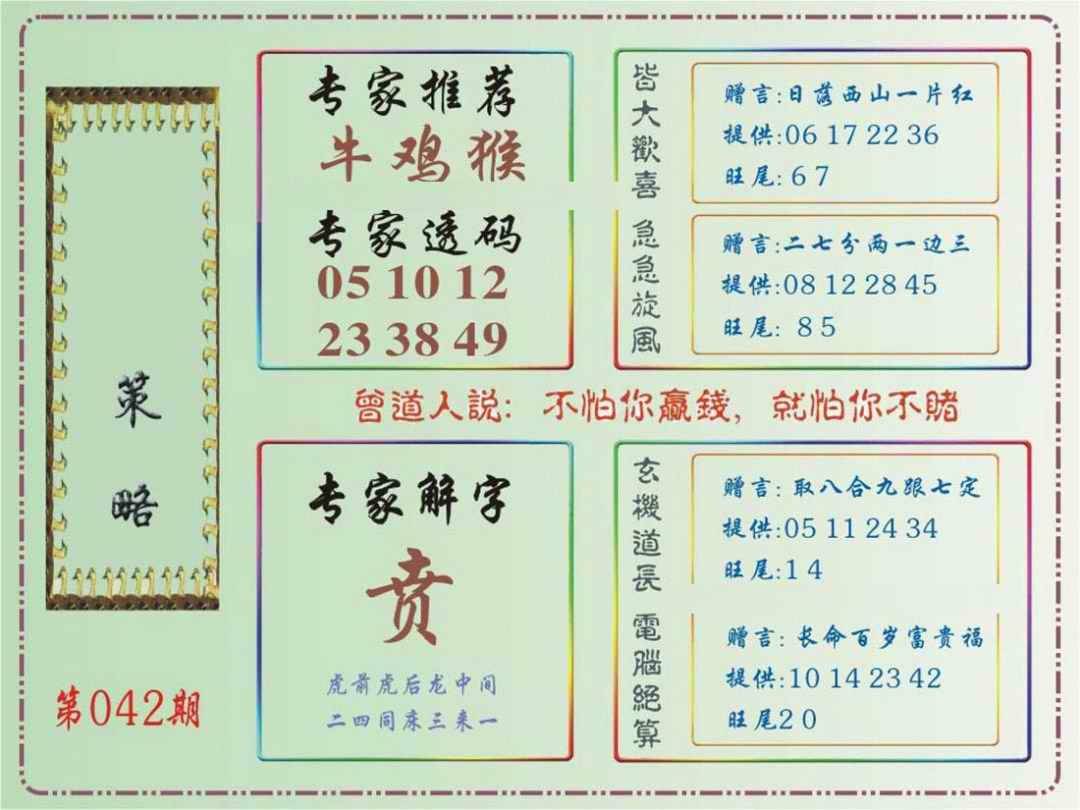 策略
第042期
专家推荐
牛鸡猴
专家透码
05 10 12
23 38 49
皆大歡喜
赠言:日落西山一片红
提供:06 17 22 36
旺尾:6 7
急急旋风
赠言:二七分两一边三
提供:08 12 28 45
旺尾: 8 5
曾道人説: 不怕你贏錢, 就怕你不賭
专家解字
贲
虎前虎后龙中间
二四同床三来一
玄機道長
赠言: 取八合九跟七定
提供:05 11 24 34
旺尾:1 4
電腦絕算
赠言: 长命百岁富贵福
提供:10 14 23 42
旺尾2 0